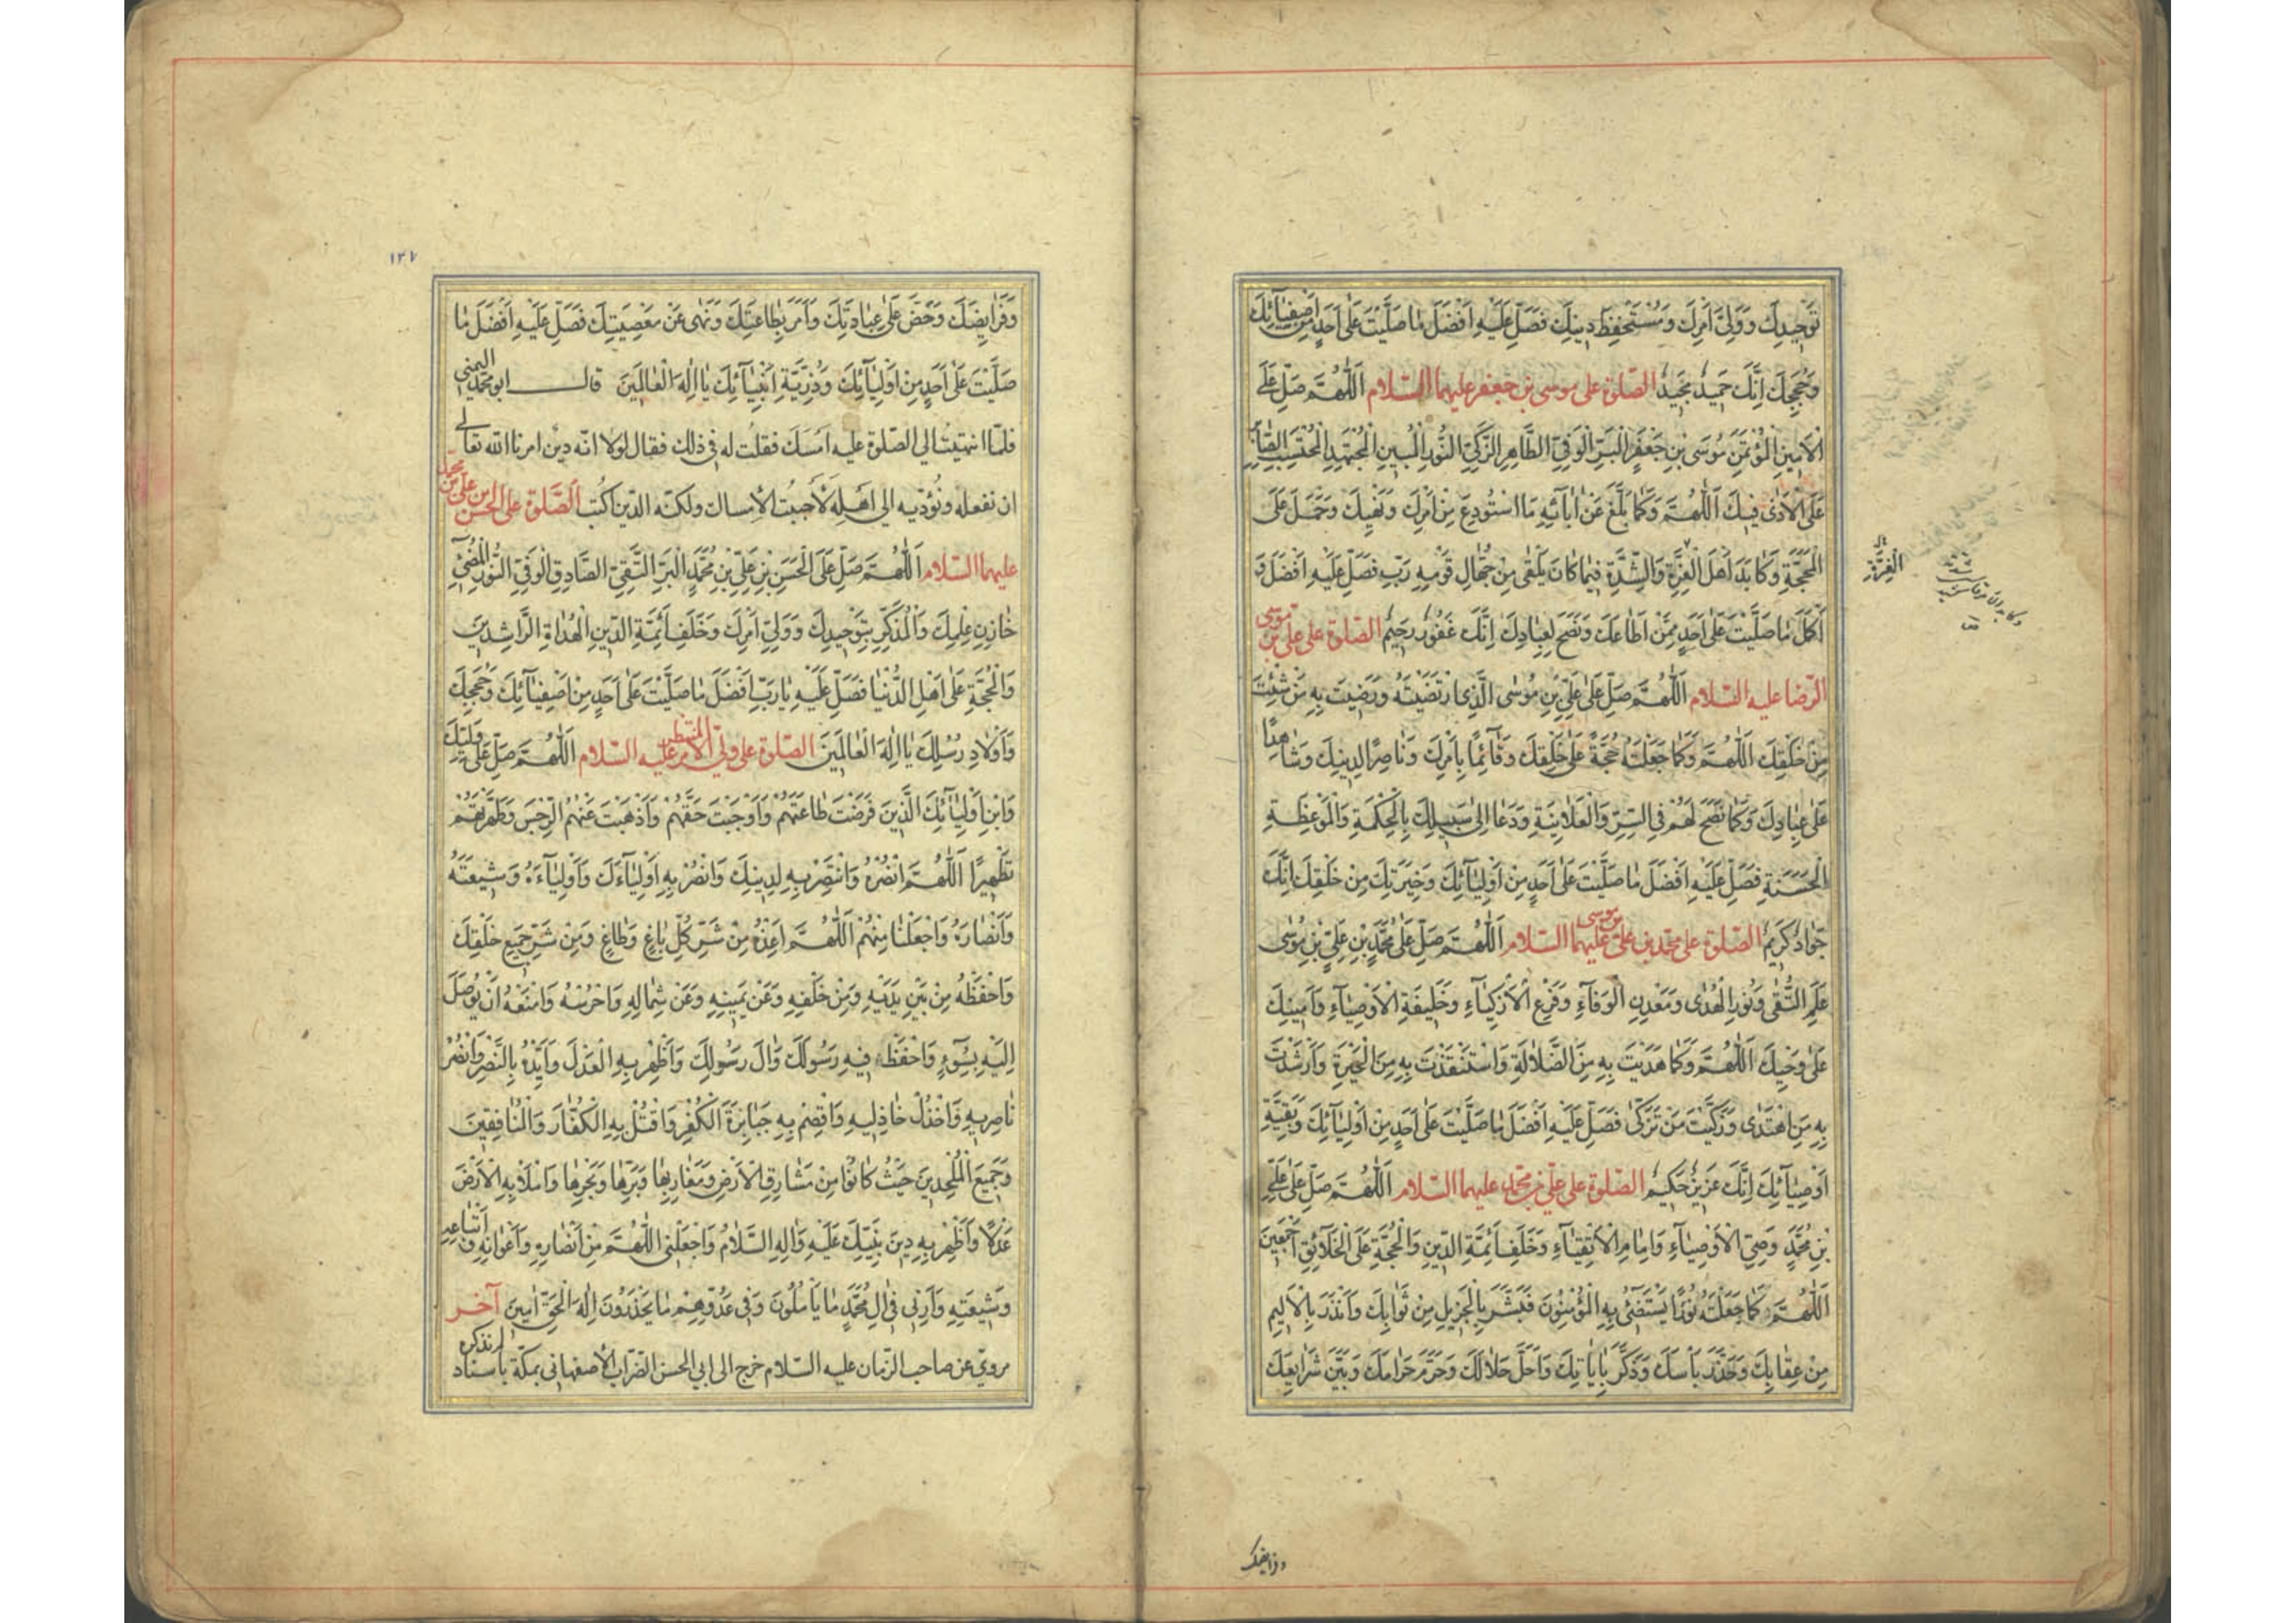 تَوْحِيدِكَ وَوَلِيِّ أَمْرِكَ وَمُسْتَحْفِظِ دِينِكَ فَصَلِّ عَلَيْهِ اَفْضَلَ مَا صَلَّيْتَ عَلَى اَحَدٍ مِنْ اَصْفِيَآئِكَ
وَحُجَجِكَ اِنَّكَ حَمِيدٌ مَجِيدٌ الصّلوة على موسى بن جعفر عليهما السّلام اَللّٰهُمَّ صَلِّ عَلَى
الْاَمِينِ الْمُؤْتَمَنِ مُوسَى بْنِ جَعْفَرٍ الْبَرِّ الْوَفِيِّ الطَّاهِرِ الزَّكِيِّ النُّورِ الْمُبِينِ الْمُجْتَهِدِ الْمُحْتَسِبِ الصَّابِرِ
عَلَى الْاَذٰى فِيكَ اَللّٰهُمَّ وَكَمَا بَلَّغَ عَنْ اٰبَآئِهِ مَا اسْتُودِعَ مِنْ اَمْرِكَ وَنَهْيِكَ وَحَمَلَ عَلَى
الْمَحَجَّةِ وَكَابَدَ اَهْلَ الْعِزَّةِ وَالشِّدَّةِ فِيمَا كَانَ يَلْقٰى مِنْ جُهَّالِ قَوْمِهِ رَبِّ فَصَلِّ عَلَيْهِ اَفْضَلَ وَ
اَكْمَلَ مَا صَلَّيْتَ عَلٰى اَحَدٍ مِمَّنْ اَطَاعَكَ وَنَصَحَ لِعِبَادِكَ اِنَّكَ غَفُورٌ رَحِيمٌ الصّلوة على علي بن موسى
الرّضا عليه السّلام اَللّٰهُمَّ صَلِّ عَلٰى عَلِيِّ بْنِ مُوسَى الَّذِي ارْتَضَيْتَهُ وَرَضِيتَ بِهِ مَنْ شِئْتَ
مِنْ خَلْقِكَ اَللّٰهُمَّ وَكَمَا جَعَلْتَهُ حُجَّةً عَلٰى خَلْقِكَ وَقَآئِمًا بِاَمْرِكَ وَنَاصِرًا لِدِينِكَ وَشَاهِدًا
عَلٰى عِبَادِكَ وَكَمَا نَصَحَ لَهُمْ فِي السِّرِّ وَالْعَلَانِيَةِ وَدَعَا اِلٰى سَبِيلِكَ بِالْحِكْمَةِ وَالْمَوْعِظَةِ
الْحَسَنَةِ فَصَلِّ عَلَيْهِ اَفْضَلَ مَا صَلَّيْتَ عَلٰى اَحَدٍ مِنْ اَوْلِيَآئِكَ وَخِيَرَتِكَ مِنْ خَلْقِكَ اِنَّكَ
جَوَادٌ كَرِيمٌ الصّلوة على محمّد بن علي بن موسى عليهما السّلام اَللّٰهُمَّ صَلِّ عَلٰى مُحَمَّدِ بْنِ عَلِيِّ بْنِ مُوسٰى
عَلَمِ التُّقٰى وَنُورِ الْهُدٰى وَمَعْدِنِ الْوَفَآءِ وَفَرْعِ الْاَزْكِيَآءِ وَخَلِيفَةِ الْاَوْصِيَآءِ وَاَمِينِكَ
عَلٰى وَحْيِكَ اَللّٰهُمَّ وَكَمَا هَدَيْتَ بِهِ مِنَ الضَّلَالَةِ وَاسْتَنْقَذْتَ بِهِ مِنَ الْحَيْرَةِ وَاَرْشَدْتَ
بِهِ مَنِ اهْتَدٰى وَزَكَّيْتَ مَنْ تَزَكّٰى فَصَلِّ عَلَيْهِ اَفْضَلَ مَا صَلَّيْتَ عَلٰى اَحَدٍ مِنْ اَوْلِيَآئِكَ وَبَقِيَّةِ
اَوْصِيَآئِكَ اِنَّكَ عَزِيزٌ حَكِيمٌ الصّلوة على علي بن محمّد عليهما السّلام اَللّٰهُمَّ صَلِّ عَلٰى عَلِيِّ
بْنِ مُحَمَّدٍ وَصِيِّ الْاَوْصِيَآءِ وَاِمَامِ الْاَتْقِيَآءِ وَخَلَفِ اَئِمَّةِ الدِّينِ وَالْحُجَّةِ عَلَى الْخَلَآئِقِ اَجْمَعِينَ
اَللّٰهُمَّ كَمَا جَعَلْتَهُ نُورًا يَسْتَضِيءُ بِهِ الْمُؤْمِنُونَ فَبَشَّرَ بِالْجَزِيلِ مِنْ ثَوَابِكَ وَاَنْذَرَ بِالْاَلِيمِ
مِنْ عِقَابِكَ وَحَذَّرَ بَاْسَكَ وَذَكَّرَ بِاٰيَاتِكَ وَاَحَلَّ حَلَالَكَ وَحَرَّمَ حَرَامَكَ وَبَيَّنَ شَرَايِعَكَ
وفرايضك
١٢٧
وَفَرَايِضَكَ وَحَضَّ عَلٰى عِبَادَتِكَ وَاَمَرَ بِطَاعَتِكَ وَنَهٰى عَنْ مَعْصِيَتِكَ فَصَلِّ عَلَيْهِ اَفْضَلَ مَا
صَلَّيْتَ عَلٰى اَحَدٍ مِنْ اَوْلِيَآئِكَ وَذُرِّيَّةِ اَنْبِيَآئِكَ يَا اِلٰهَ الْعَالَمِينَ قال ابو محمّد اليمني
فلمّا انتهيتُ الى الصّلوة عليه امسَكَ فقلت له في ذلك فقال لولا انّه دين امرنا الله تعالى
ان نفعله ونُؤدّيه الى اَهْلِهِ لَاَحببتُ الاِمساك ولكنّه الدّين اكتب الصّلوة على الحسن بن علي بن محمّد
عليهما السّلام اَللّٰهُمَّ صَلِّ عَلَى الْحَسَنِ بْنِ عَلِيِّ بْنِ مُحَمَّدٍ الْبَرِّ التَّقِيِّ الصَّادِقِ الْوَفِيِّ النُّورِ الْمُضِيءِ
خَازِنِ عِلْمِكَ وَالْمُذَكِّرِ بِتَوْحِيدِكَ وَوَلِيِّ اَمْرِكَ وَخَلَفِ اَئِمَّةِ الدِّينِ الْهُدَاةِ الرَّاشِدِينَ
وَالْحُجَّةِ عَلٰى اَهْلِ الدُّنْيَا فَصَلِّ عَلَيْهِ يَا رَبِّ اَفْضَلَ مَا صَلَّيْتَ عَلٰى اَحَدٍ مِنْ اَصْفِيَآئِكَ وَحُجَجِكَ
وَاَوْلَادِ رُسُلِكَ يَا اِلٰهَ الْعَالَمِينَ الصّلوة على وليّ الامر المنتظر عليه السّلام اَللّٰهُمَّ صَلِّ عَلٰى وَلِيِّكَ
وَابْنِ اَوْلِيَآئِكَ الَّذِينَ فَرَضْتَ طَاعَتَهُمْ وَاَوْجَبْتَ حَقَّهُمْ وَاَذْهَبْتَ عَنْهُمُ الرِّجْسَ وَطَهَّرْتَهُمْ
تَطْهِيرًا اَللّٰهُمَّ انْصُرْهُ وَانْتَصِرْ بِهِ لِدِينِكَ وَانْصُرْ بِهِ اَوْلِيَآءَكَ وَاَوْلِيَآءَهُ وَشِيعَتَهُ
وَاَنْصَارَهُ وَاجْعَلْنَا مِنْهُمْ اَللّٰهُمَّ اَعِذْهُ مِنْ شَرِّ كُلِّ بَاغٍ وَطَاغٍ وَمِنْ شَرِّ جَمِيعِ خَلْقِكَ
وَاحْفَظْهُ مِنْ بَيْنِ يَدَيْهِ وَمِنْ خَلْفِهِ وَعَنْ يَمِينِهِ وَعَنْ شِمَالِهِ وَاحْرُسْهُ وَامْنَعْهُ اَنْ يُوصَلَ
اِلَيْهِ بِسُوٓءٍ وَاحْفَظْ فِيهِ رَسُولَكَ وَاٰلَ رَسُولِكَ وَاَظْهِرْ بِهِ الْعَدْلَ وَاَيِّدْهُ بِالنَّصْرِ وَانْصُرْ
نَاصِرِيهِ وَاخْذُلْ خَاذِلِيهِ وَاقْصِمْ بِهِ جَبَابِرَةَ الْكُفْرِ وَاقْتُلْ بِهِ الْكُفَّارَ وَالْمُنَافِقِينَ
وَجَمِيعَ الْمُلْحِدِينَ حَيْثُ كَانُوا مِنْ مَشَارِقِ الْاَرْضِ وَمَغَارِبِهَا وَبَرِّهَا وَبَحْرِهَا وَامْلَأْ بِهِ الْاَرْضَ
عَدْلًا وَاَظْهِرْ بِهِ دِينَ نَبِيِّكَ عَلَيْهِ وَاٰلِهِ السَّلَامُ وَاجْعَلْنِي اللّٰهُمَّ مِنْ اَنْصَارِهِ وَاَعْوَانِهِ وَاَتْبَاعِهِ
وَشِيعَتِهِ وَاَرِنِي فِي اٰلِ مُحَمَّدٍ مَا يَاْمُلُونَ وَفِي عَدُوِّهِمْ مَا يَحْذَرُونَ اِلٰهَ الْحَقِّ اٰمِينَ آخر
مرويّ عن صاحب الزّمان عليه السّلام خرج الى ابي الحسن الضّرّاب الاصفهاني بمكّة باسناد لم نذكره